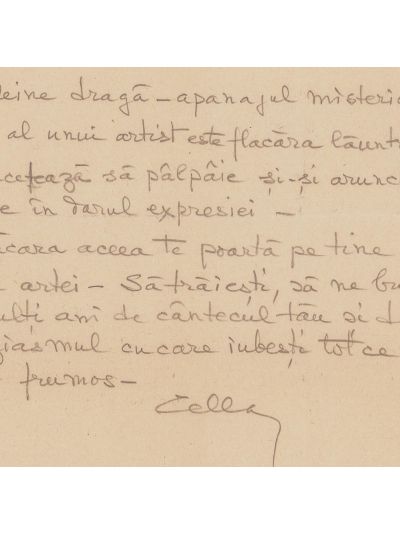 eine dragă – apanajul misteri
al unui artist este flacăra lăunt
cetează să pâlpâie și-și arunc
e în darul expresiei –
ăcara aceea te poartă pe tine
artei – Să trăiești, să ne bu
ulți ani de cântecul tău si d
ziasmul cu care iubești tot ce
frumos –
Cella